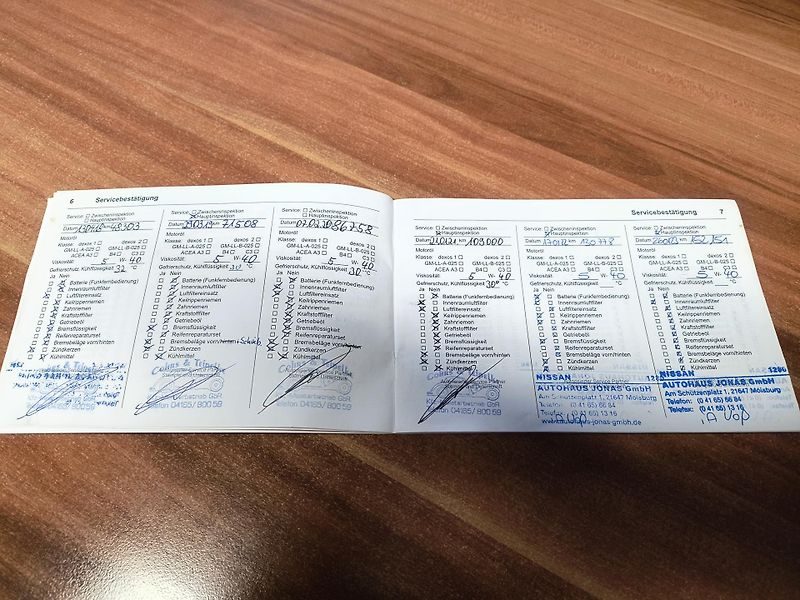 6 Servicebestätigung
Service: Zwischeninspektion
Hauptinspektion
Datum km 48303
Motoröl
Klasse: dexos 1 dexos 2
GM-LL-A-025 GM-LL-B-025
ACEA A3 B4 C3
Viskosität: 5 W- 40
Gefrierschutz, Kühlflüssigkeit 32 °C
Ja Nein
Batterie (Funkfernbedienung)
Innenraumluftfilter
Luftfiltereinsatz
Keilrippenriemen
Zahnriemen
Kraftstofffilter
Getriebeöl
Bremsflüssigkeit
Reifenreparaturset
Bremsbeläge vorn/hinten
Zündkerzen
Kühlmittel
Service: Zwischeninspektion
Hauptinspektion
Datum km 71508
Motoröl
Klasse: dexos 1 dexos 2
GM-LL-A-025 GM-LL-B-025
ACEA A3 B4 C3
Viskosität: 5 W- 40
Gefrierschutz, Kühlflüssigkeit °C
Ja Nein
Batterie (Funkfernbedienung)
Innenraumluftfilter
Luftfiltereinsatz
Keilrippenriemen
Zahnriemen
Kraftstofffilter
Getriebeöl
Bremsflüssigkeit
Reifenreparaturset
Bremsbeläge vorn/hinten
Zündkerzen
Kühlmittel
Telefon 04165/80059
Service: Zwischeninspektion
Hauptinspektion
Datum 07.02.20 86758
Motoröl
Klasse: dexos 1 dexos 2
GM-LL-A-025 GM-LL-B-025
ACEA A3 B4 C3
Viskosität: 5 W- 40
Gefrierschutz, Kühlflüssigkeit 30 °C
Ja Nein
Batterie (Funkfernbedienung)
Innenraumluftfilter
Luftfiltereinsatz
Keilrippenriemen
Zahnriemen
Kraftstofffilter
Getriebeöl
Bremsflüssigkeit
Reifenreparaturset
Bremsbeläge vorn/hinten
Zündkerzen
Kühlmittel
Telefon 04165/80059
Servicebestätigung 7
Service: Zwischeninspektion
Hauptinspektion
Datum km 109000
Motoröl
Klasse: dexos 1 dexos 2
GM-LL-A-025 GM-LL-B-025
ACEA A3 B4 C3
Viskosität: 5 W- 40
Gefrierschutz, Kühlflüssigkeit 30° °C
Ja Nein
Batterie (Funkfernbedienung)
Innenraumluftfilter
Luftfiltereinsatz
Keilrippenriemen
Zahnriemen
Kraftstofffilter
Getriebeöl
Bremsflüssigkeit
Reifenreparaturset
Bremsbeläge vorn/hinten
Zündkerzen
Kühlmittel
Telefon 04165/80059
Service: Zwischeninspektion
Hauptinspektion
Datum km 130778
Motoröl
Klasse: dexos 1 dexos 2
GM-LL-A-025 GM-LL-B-025
ACEA A3 B4 C3
Viskosität: 5 W- 40
Gefrierschutz, Kühlflüssigkeit °C
Ja Nein
Batterie (Funkfernbedienung)
Innenraumluftfilter
Luftfiltereinsatz
Keilrippenriemen
Zahnriemen
Kraftstofffilter
Getriebeöl
Bremsflüssigkeit
Reifenreparaturset
Bremsbeläge vorn/hinten
Zündkerzen
Kühlmittel
NISSAN
AUTOHAUS JONAS GmbH
Am Schützenplatz 1, 21647 Moisburg
Telefon: (0 41 65) 66 84
Telefax: (0 41 65) 13 16
www.autohaus-jonas-gmbh.de
Service: Zwischeninspektion
Hauptinspektion
Datum km 152.151
Motoröl
Klasse: dexos 1 dexos 2
GM-LL-A-025 GM-LL-B-025
ACEA A3 B4 C3
Viskosität: 5 W- 40
Gefrierschutz, Kühlflüssigkeit °C
Ja Nein
Batterie (Funkfernbedienung)
Innenraumluftfilter
Luftfiltereinsatz
Keilrippenriemen
Zahnriemen
Kraftstofffilter
Getriebeöl
Bremsflüssigkeit
Reifenreparaturset
Bremsbeläge vorn/hinten
Zündkerzen
Kühlmittel
NISSAN 1286
AUTOHAUS JONAS GmbH
Am Schützenplatz 1, 21647 Moisburg
Telefon: (0 41 65) 66 84
Telefax: (0 41 65) 13 16